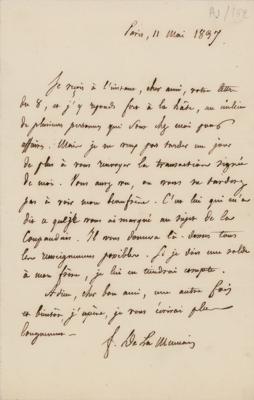 Paris, 11 Mai 1837
Je reçois à l'instant, cher ami, votre lettre
du 8, et j'y réponds fort à la hâte, au milieu
de plusieurs personnes qui sont chez moi pour
affaires. Mais je ne veux pas tarder un jour
de plus à vous renvoyer la transaction signée
de moi. Vous aurez vu, ou vous ne tarderez
pas à voir mon beaufrère. C'est lui qui m'a
dit ce que je vous ai marqué au sujet de la
Il vous donnera là-dessus tous
les renseignemens possibles. Si je dois une solde
à mon frère, je lui en tiendrai compte.
Adieu, cher bon ami, une autre fois
et bientôt, j'espère, je vous écrirai plus
longuement.
F. De La Mennais